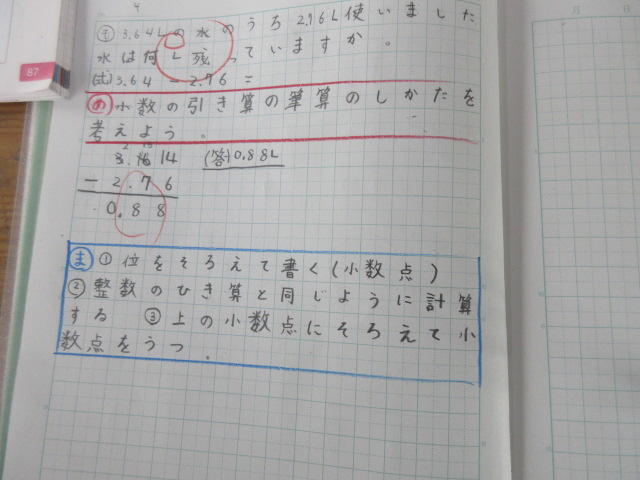 87
4
も 3.64Lの水のうち2.76L使いました
水は何L残っていますか。
(式)3.64-2.76=
め 小数の引き算の筆算のしかたを
考えよう。
3.6 14 (答)0.88L
- 2.76
0.88
ま ①位をそろえて書く(小数点)
②整数のひき算と同じように計算
する ③上の小数点にそろえて小
数点をうつ.